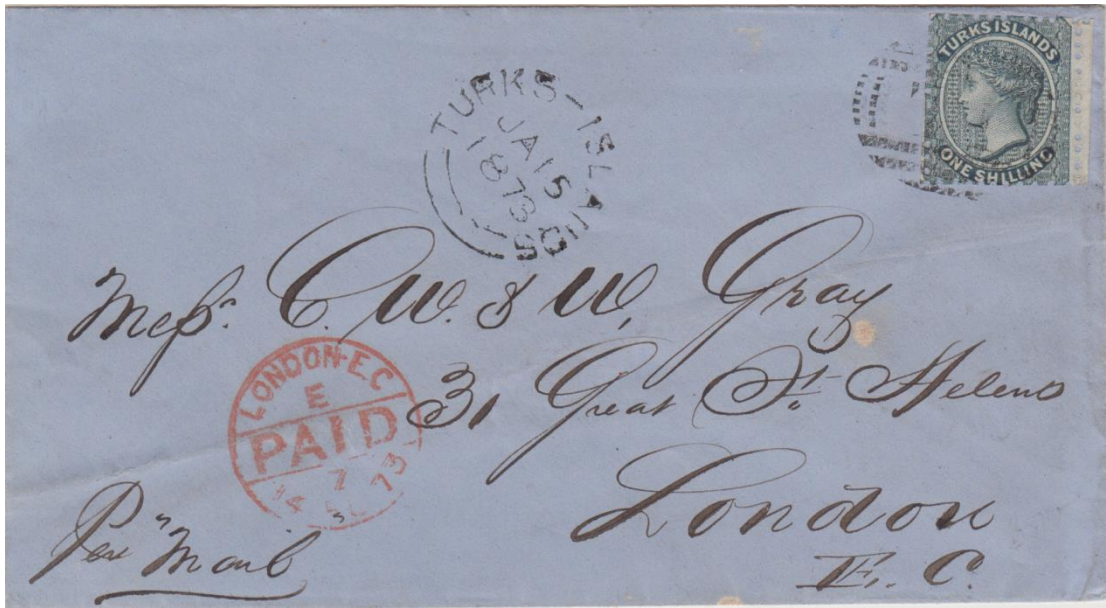 TURKS ISLANDS
ONE SHILLING
TURKS-ISLANDS
JA 15
1873
Messrs. C. W. & W. Gray
31 Great St. Helens
London
E.C.
LONDON-E.C
E
PAID
7
14 73
Per Mail